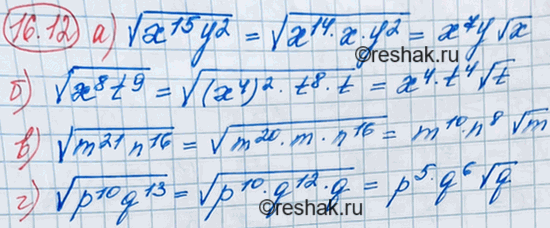 16.12 а) √(x¹⁵y²) = √(x¹⁴·x·y²) = x⁷y√x
б) √(x⁸t⁹) = √((x⁴)²·t⁸·t) = x⁴·t⁴√t
в) √(m²¹n¹⁶) = √(m²⁰·m·n¹⁶) = m¹⁰·n⁸√m
г) √(p¹⁰q¹³) = √(p¹⁰·q¹²·q) = p⁵·q⁶√q
©reshak.ru